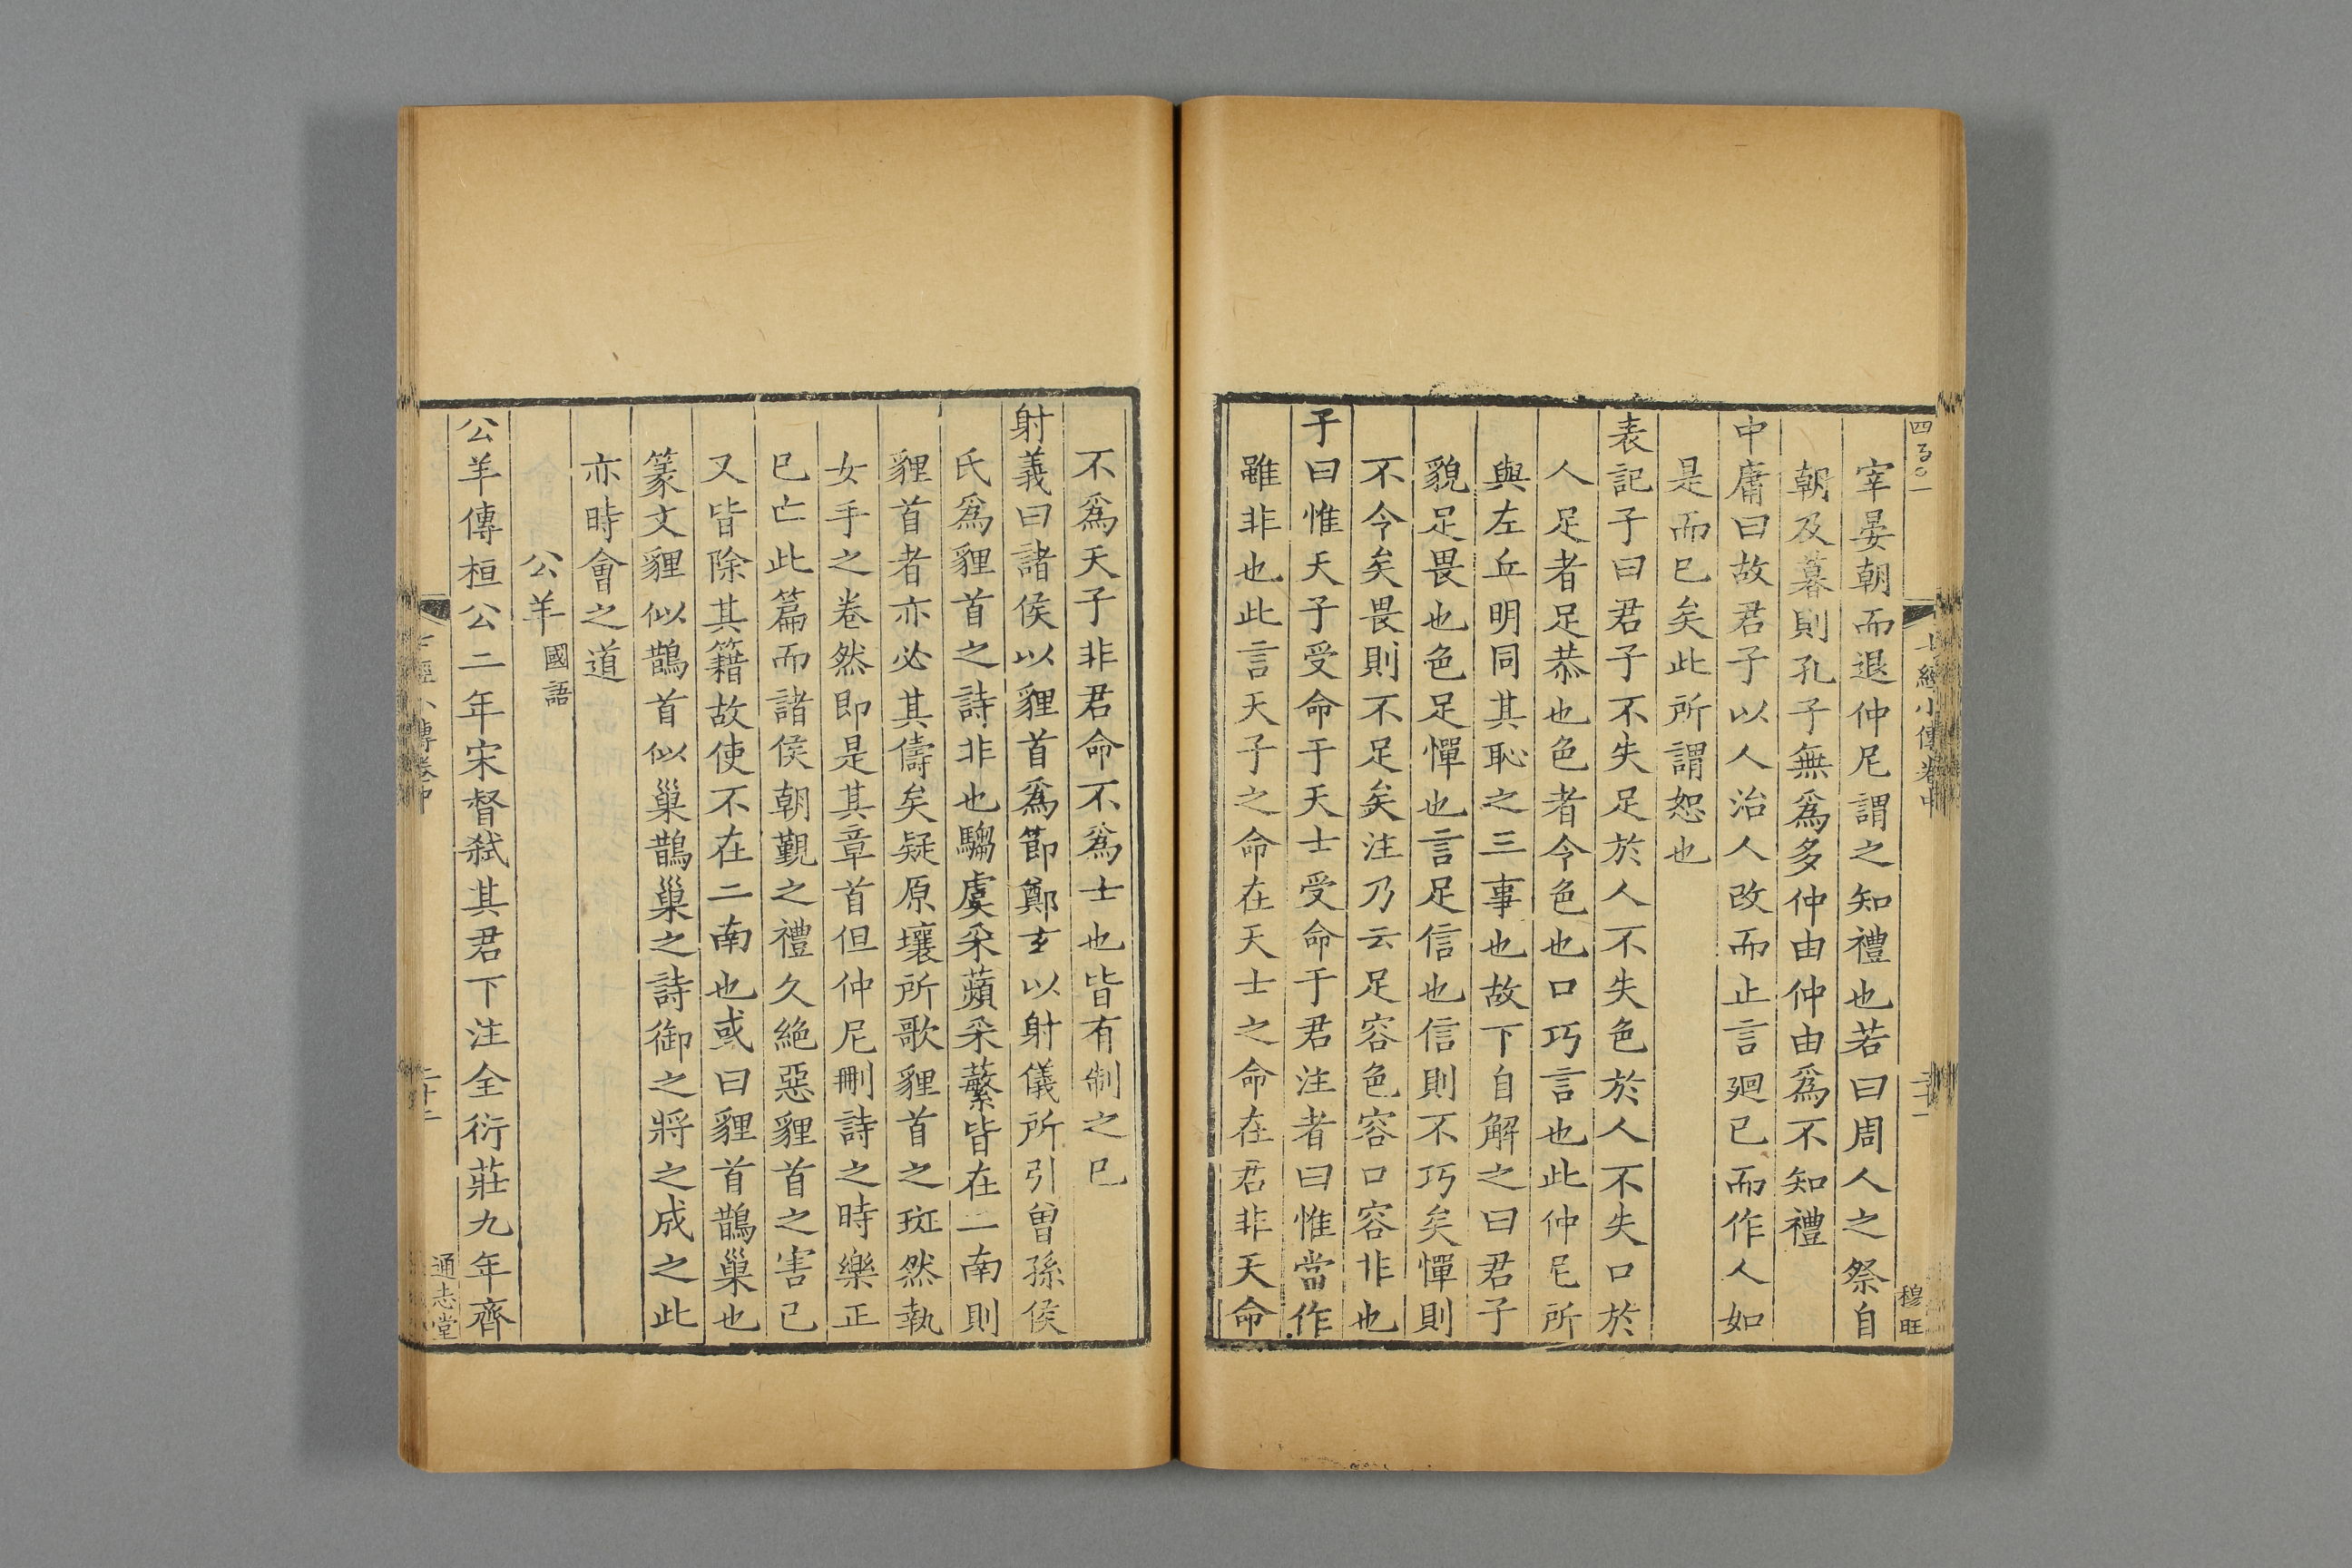 宰晏朝而退仲尼謂之知禮也若曰周人之祭自
朝及暮則孔子無爲多仲由仲由爲不知禮
中庸曰故君子以人治人改而止言廻已而作人如
是而已矣此所謂恕也
表記子曰君子不失足於人不失色於人不失口於
人足者足恭也色者令色也口巧言也此仲尼所
與左丘明同其恥之三事也故下自解之曰君子
貌足畏也色足憚也言足信也信則不巧矣憚則
不令矣畏則不足矣注乃云足容色容口容非也
子曰惟天子受命于天士受命于君注者曰惟當作
雖非也此言天子之命在天士之命在君非天命
不爲天子非君命不爲士也皆有制之已
射義曰諸侯以貍首爲節鄭玄以射儀所引曾孫侯
氏爲貍首之詩非也騶虞采蘋采蘩皆在二南則
貍首者亦必其儔矣疑原壤所歌貍首之斑然執
女手之卷然即是其章首但仲尼刪詩之時樂正
已亡此篇而諸侯朝覲之禮久絕惡貍首之害已
又皆除其籍故使不在二南也或曰貍首鵲巢也
篆文貍似鵲首似巢鵲巢之詩御之將之成之此
亦時會之道
公羊國語
公羊傳桓公二年宋督弑其君下注全衍莊九年齊
七經小傳卷中
穆旺
通志堂